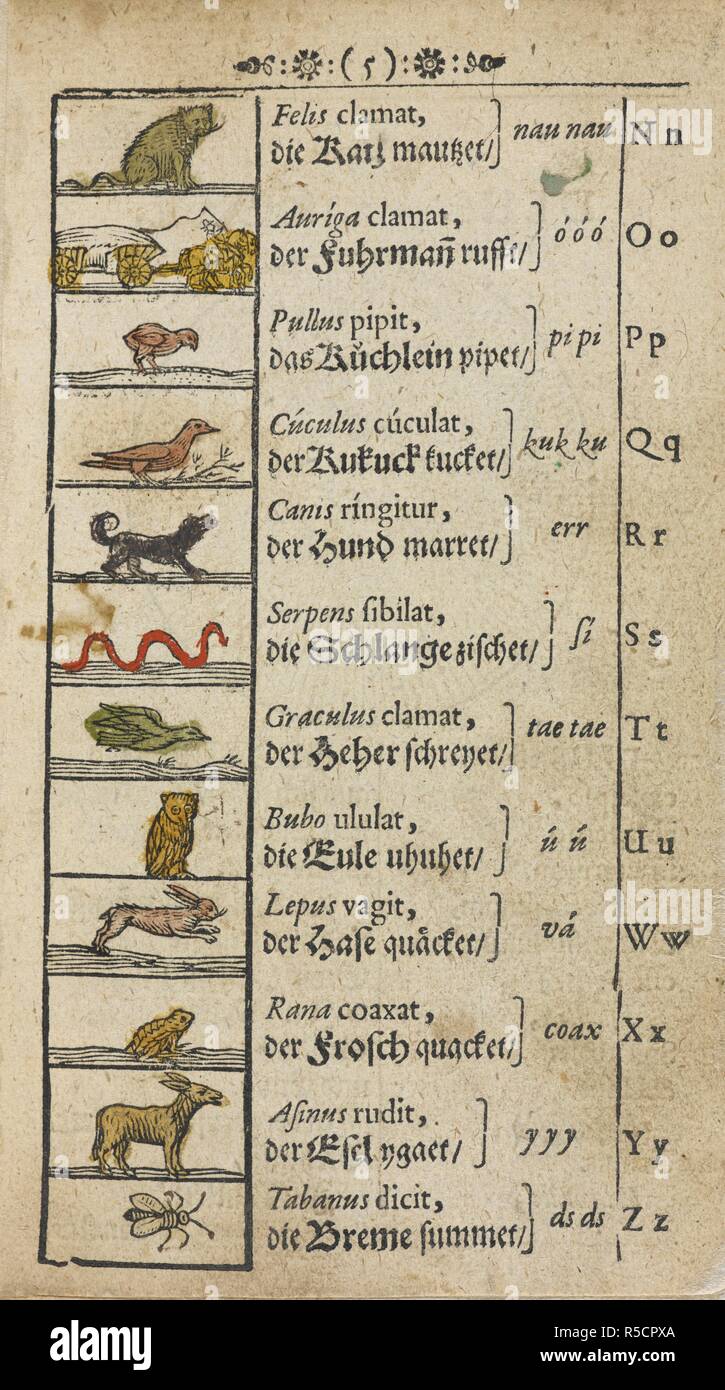 (5)
Felis clamat,
die Katz mautzet/
nau nau
N n
Auríga clamat,
der Fuhrman̄ rufft/
ó ó ó
O o
Pullus pipit,
das Kůchlein pipet/
pi pi
P p
Cúculus cúculat,
der Kukuck kucket/
kuk ku
Q q
Canis ríngitur,
der Hund marret/
err
R r
Serpens ſibilat,
die Schlange ziſchet/
ſi
S s
Graculus clamat,
der Heher ſchreyet/
tae tae
T t
Bubo ululat,
die Eule uhuhet/
ú ú
U u
Lepus vagit,
der Haſe quåcket/
vá
W w
Rana coaxat,
der Froſch quacket/
coax
X x
Aſinus rudit,
der Eſel ygaet/
y y y
Y y
Tabanus dicit,
die Breme ſummet/
ds ds
Z z
alamy
Image ID: R5CPXA
www.alamy.com